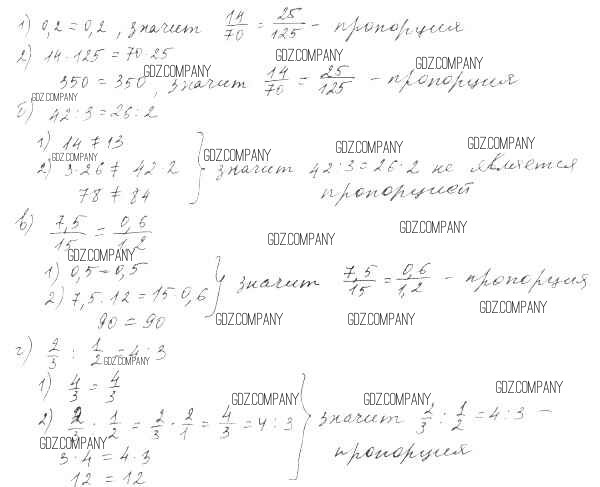 1) 0,2 = 0,2, значит 14/70 = 25/125 - пропорция
2) 14 · 125 = 70 · 25
GDZ.COMPANY
GDZ.COMPANY
350 = 350, значит 14/70 = 25/125 - пропорция
GDZ.COMPANY
GDZ.COMPANY
б) 42 : 3 = 26 : 2
1) 14 ≠ 13
GDZ.COMPANY
GDZ.COMPANY
GDZ.COMPANY
GDZ.COMPANY
2) 3 · 26 ≠ 42 · 2 } значит 42 : 3 = 26 : 2 не является
78 ≠ 84 пропорцией
в) 7,5/15 = 0,6/1,2
GDZ.COMPANY
GDZ.COMPANY
GDZ.COMPANY
1) 0,5 = 0,5
2) 7,5 · 12 = 15 · 0,6 } значит 7,5/15 = 0,6/1,2 - пропорция
GDZ.COMPANY
90 = 90
GDZ.COMPANY
GDZ.COMPANY
г) 2/3 : 1/2 = 4 : 3
GDZ.COMPANY
1) 4/3 = 4/3
GDZ.COMPANY
GDZ.COMPANY
GDZ.COMPANY
2) 2/3 · 1/2 = 2/3 · 2/1 = 4/3 = 4 : 3 } значит 2/3 : 1/2 = 4 : 3 -
GDZ.COMPANY
пропорция
3 · 4 = 4 · 3
12 = 12